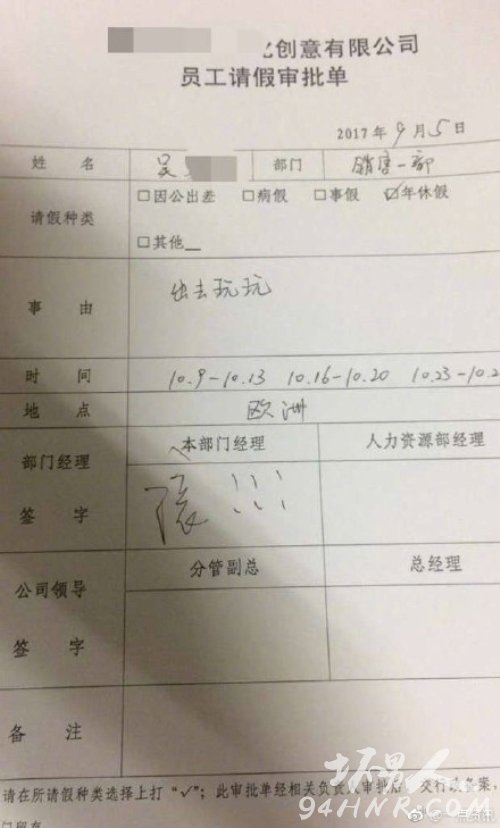 化创意有限公司
员工请假审批单
2017年9月5日
姓 名 吴 部门 销售一部
请假种类 □因公出差 □病假 □事假 ☑年休假
□其他__
事 由 出去玩玩
时 间 10.9-10.13 10.16-10.20 10.23-10.2
地 点 欧洲
部门经理 本部门经理 人力资源部经理
签 字
公司领导 分管副总 总经理
签 字
备 注
请在所请假种类选择上打“√”；此审批单经相关负责人审批后，交行政备案，
门留存
坏男人
94HNR.COM